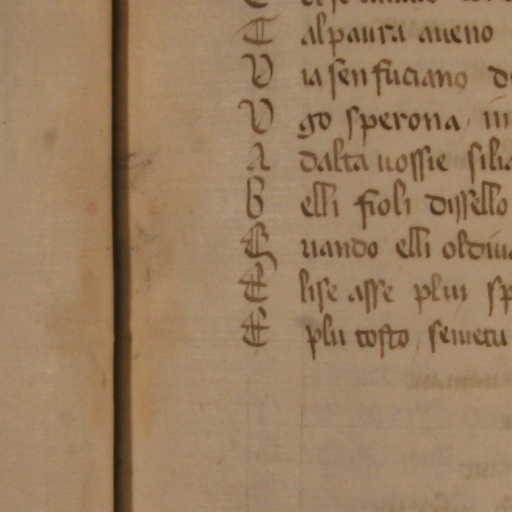 T alpaura aueno
V ia sen fuciano d
V go sperona in
A dalta uossie silia
B elli fioli dissello
Q uando elli oldiua
E lise asse plui sp
E plu tosto semetu